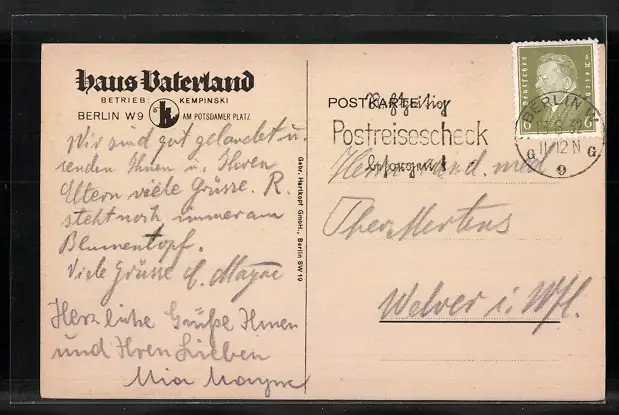 Haus Vaterland
BETRIEB: KEMPINSKI
BERLIN W9 AM POTSDAMER PLATZ
Wir sind gut gelandet u.
senden Ihnen u. Ihren
Eltern viele Grüsse. R.
steht noch immer am
Blumentopf.
Viele Grüsse
Herzliche Grüße Ihnen
und Ihren Lieben
Mia
Gebr. Hartkopf GmbH., Berlin SW 19
POSTKARTE
Postreisescheck
Herrn cand. med
Theo Mertens
Welver i. Wfl.
Deutsches Reich
6 6
BERLIN W
11-12 N
G 9 G